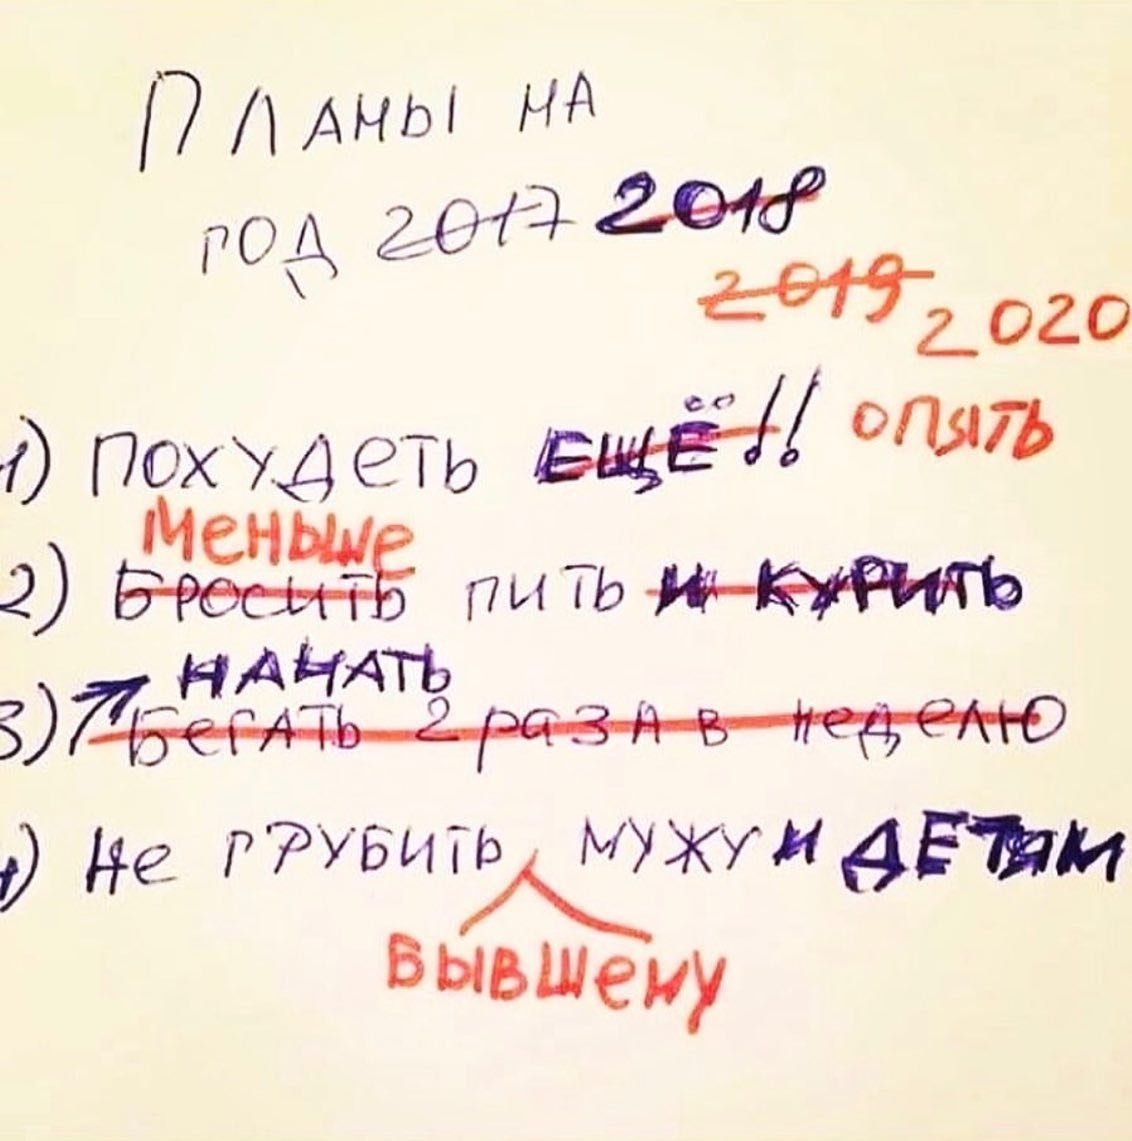 Планы на
год 2017 2018
2019 2020
1) Похудеть ЕЩЁ!! опять
Меньше
2) Бросить пить и курить
НАЧАТЬ
3) Бегать 2 раза в неделю
4) Не грубить мужу и ДЕТЯМ
бывшему